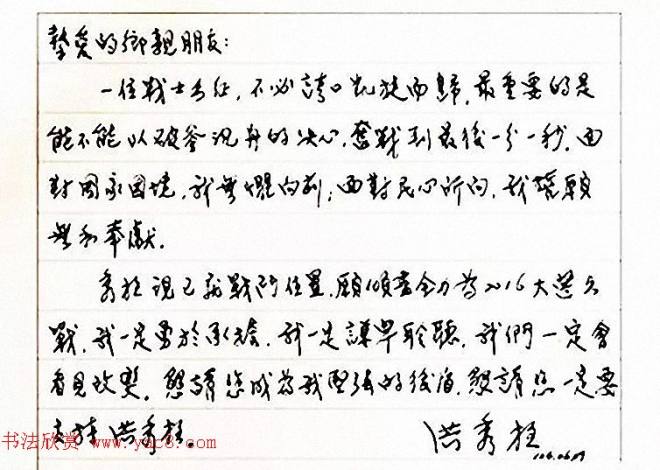 摯愛的鄉親朋友:
一位戰士出征，不必誇口凱旋而歸，最重要的是
能不能以破釜沉舟的決心，奮戰到最後一分一秒。面
對國家困境，我無懼向前；面對民心所向，我傾願
無私奉獻。
秀柱現已就戰鬥位置，願傾盡全力為2016大選之
戰，我一定勇於承擔，我一定謙卑聆聽，我們一定會
看見改變。懇請您成為我堅強的後盾，懇請您一定要
支持洪秀柱。
洪秀柱
书法欣赏 www.yac8.com